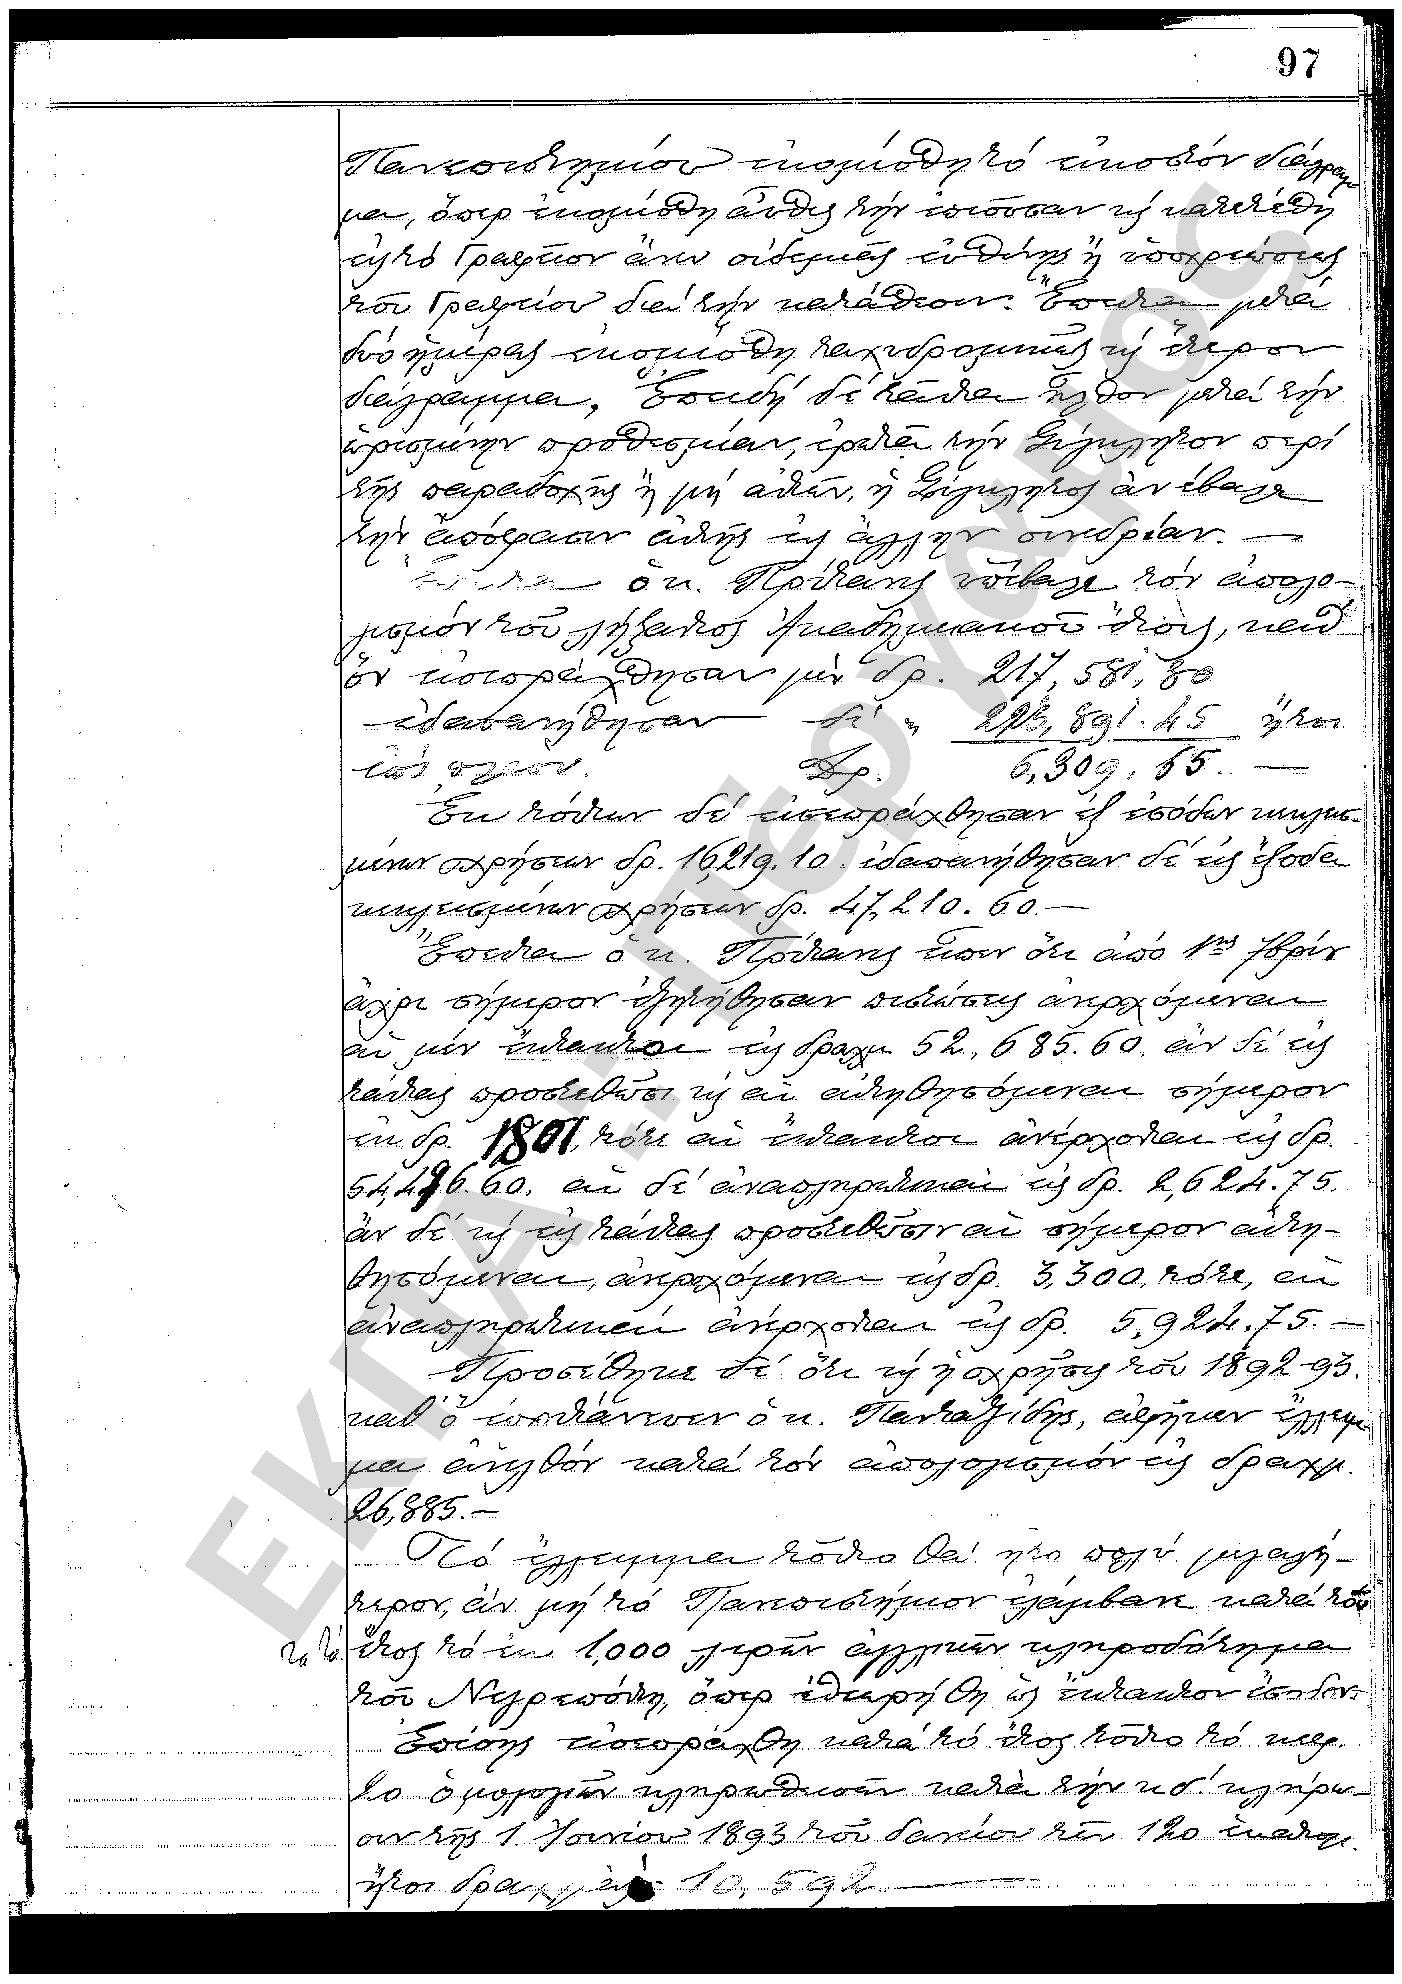 97
Πανεπιστημίου ἐκομίσθη τό εἰκοστόν διάγραμ
μα, ὅπερ ἐκομίσθη αὖθις τήν ἐπιοῦσαν καί κατετέθη
εἰς τό Γραφεῖον ἄνευ οὐδεμιᾶς εὐθύνης ἤ ὑποχρεώσεως
τοῦ Γραφείου διά τήν κατάθεσιν. Ἔπειτα μετά
δύο ἡμέρας ἐκομίσθη ταχυδρομικῶς καί ἕτερον
διάγραμμα. Ἐπειδή δέ ταῦτα ἦλθον μετά τήν
ὡρισμένην προθεσμίαν, ἐρωτᾷ τήν Σύγκλητον περί
τῆς παραδοχῆς ἤ μή αὐτῶν, ἡ Σύγκλητος ἀνέβαλε
τήν ἀπόφασιν αὐτῆς εἰς ἄλλην συνεδρίαν. —
Ἔπειτα ὁ κ. Πρύτανις ὑπέβαλε τόν ἀπολο-
γισμόν τοῦ λήξαντος Ἀκαδημαϊκοῦ ἔτους, καθ'
ὅν εἰσεπράχθησαν μέν δρ. 217,581,80
ἐδαπανήθησαν δέ „ 223,891.45 ἤτοι
ἐπί πλέον. Δρ. 6,309,65. —
Ἐκ τούτων δέ εἰσεπράχθησαν ἐξ ἐσόδων κεκλεισ-
μένων χρήσεων δρ. 16,219.10. ἐδαπανήθησαν δέ εἰς ἔξοδα
κεκλεισμένων χρήσεων δρ. 47,210.60.—
Ἔπειτα ὁ κ. Πρύτανις εἶπεν ὅτι ἀπό 1ης 7βρίου
ἄχρι σήμερον ἐζητήθησαν πιστώσεις ἀνερχόμεναι
αἱ μέν ἔκτακτοι εἰς δραχμ 52,685.60. ἄν δέ εἰς
ταύτας προστεθῶσι καί αἱ αἰτηθησόμεναι σήμερον
ἐκ δρ. 1801, τότε αἱ ἔκτακτοι ἀνέρχονται εἰς δρ.
54,486.60. αἱ δέ ἀναπληρωτικαί εἰς δρ. 2,624.75.
ἄν δέ καί εἰς ταύτας προστεθῶσιν αἱ σήμερον αἰτη-
θησόμεναι, ἀνερχόμεναι εἰς δρ. 3,300, τότε, αἱ
ἀναπληρωτικαί ἀνέρχονται εἰς δρ. 5,924.75.—
Προσέθηκε δέ ὅτι καί ἡ χρῆσις τοῦ 1892-93.
καθ' ὅ ἐπρυτάνευεν ὁ κ. Πανταζίδης, ἀφῆκεν ἔλλειμ
μα ἀνελθόν κατά τόν ἀπολογισμόν εἰς δραχμ.
26,885.—
Τό ἔλλειμμα τοῦτο θά ἦτο πολύ μεγαλή-
τερον, ἄν μή τό Πανεπιστήμιον ἐλάμβανε κατά τοῦ
το τό ἔτος τό ἐκ 1,000 λιρῶν ἀγγλικῶν κληροδότημα
τοῦ Νεγρεπόντη, ὅπερ ἐθεωρήθη ὡς ἔκτακτον ἔσοδον.
Ἐπίσης εἰσεπράχθη κατά τό ἔτος τοῦτο τό κεφ.
ὁμολογιῶν κληρωθεισῶν κατά τήν κδ' κλήρω-
σιν τῆς 1 Ἰουνίου 1893 τοῦ δανείου τῶν 120 ἑκατομ.
ἤτοι δραχμάς 10,592 —
ΕΚΠΑ-Ιστ. Αρχείο